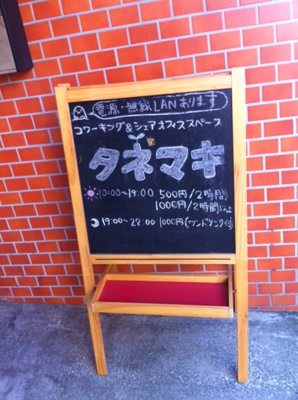 電源・無線LANあります
コワーキング&シェアオフィススペース
タネマキ
10:00~19:00 500円/2時間
1000円/2時間以上
19:00~22:00 1000円(ワンドリンク付)